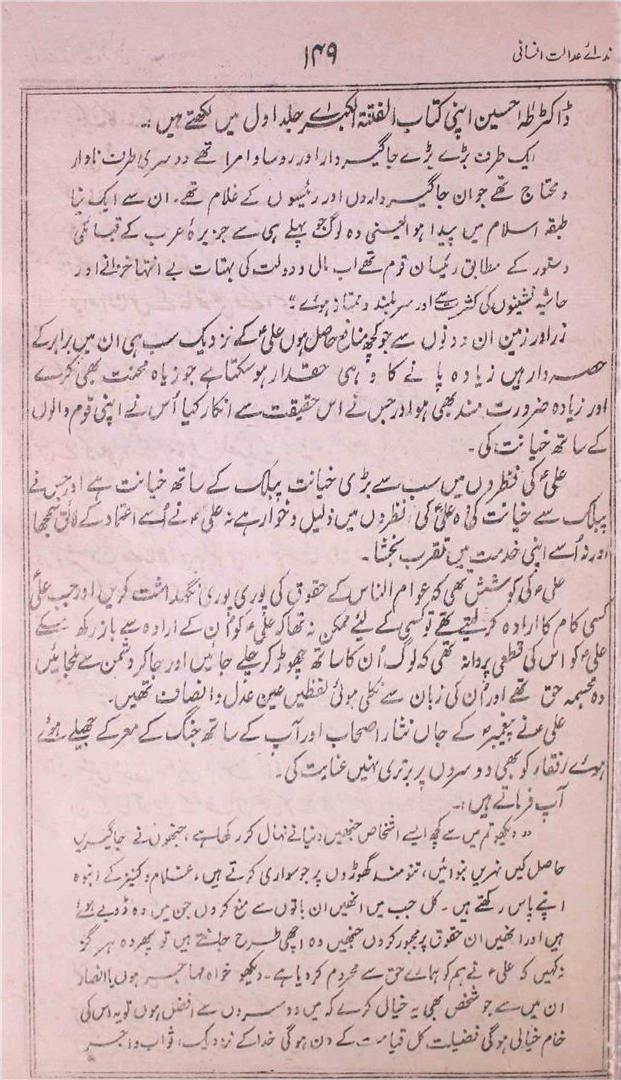 ندائے عدالت انسانی
۱۴۹
ڈاکٹر طہٰ حسین اپنی کتاب الفتنۃ الکبریٰ جلد اول میں لکھتے ہیں:۔
ایک طرف بڑے بڑے جاگیردار اور روسا و امرا تھے دوسری طرف نادار
و محتاج تھے جو ان جاگیرداروں اور رئیسوں کے غلام تھے۔ ان سے ایک نیا
طبقہ اسلام میں پیدا ہوا یعنی وہ لوگ جو پہلے ہی سے جزیرۂ عرب کے قبائلی
دستور کے مطابق رئیسان قوم تھے اب مال و دولت کی بہتات بے انتہا خزانے اور
حاشیہ نشینوں کی کثرت سے اور سربلند و ممتاز ہوئے"
زر اور زمین ان دونوں سے جو کچھ منافع حاصل ہوں علیؑ کے نزدیک سب ہی ان میں برابر کے
حصہ دار ہیں زیادہ پانے کا وہی حقدار ہو سکتا ہے جو زیادہ محنت بھی کرے
اور زیادہ ضرورت مند بھی ہو اور جس نے اس حقیقت سے انکار کیا اُس نے اپنی قوم والوں
کے ساتھ خیانت کی۔
علیؑ کی نظروں میں سب سے بڑی خیانت پبلک کے ساتھ خیانت ہے اور جس نے
پبلک سے خیانت کی وہ علیؑ کی نظروں میں ذلیل و خوار ہے نہ علیؑ نے اُسے اعتماد کے لائق سمجھا
اور نہ اُسے اپنی خدمت میں تقرب بخشا۔
علیؑ کی کوشش تھی کہ عوام الناس کے حقوق کی پوری پوری نگہداشت کریں اور جب علیؑ
کسی کام کا ارادہ کر لیتے تھے تو کسی کے لئے ممکن نہ تھا کہ علیؑ کو اُن کے ارادہ سے باز رکھ سکے
علیؑ کو اس کی قطعی پروا نہ تھی کہ لوگ اُن کا ساتھ چھوڑ کر چلے جائیں اور جا کر دشمن سے مل جائیں
وہ مجسمہ حق تھے اور اُن کی زبان سے نکلی ہوئی لفظیں عین عدل و انصاف تھیں۔
علیؑ نے پیغمبرؐ کے جاں نثار اصحاب اور آپ کے ساتھ جنگ کے معرکے جھیلے ہوئے
رفقاء کو بھی دوسروں پر برتری نہیں عنایت کی۔
آپ فرماتے ہیں:۔
"دیکھو تم میں سے کچھ ایسے اشخاص جنھیں دنیا نے نہال کر رکھا ہے، جنھوں نے جاگیریں
حاصل کیں نہریں بنوائیں، تنومند گھوڑوں پر جو سواری کرتے ہیں، غلام و کنیز کے انبوہ
اپنے پاس رکھتے ہیں۔ کل جب میں انھیں ان باتوں سے منع کروں جن میں وہ ڈوبے ہوئے
ہیں اور انھیں ان حقوق پر مجبور کروں جنھیں وہ اچھی طرح جانتے ہیں تو پھر وہ ہرگز
نہ کہیں کہ علیؑ نے ہم کو ہمارے حق سے محروم کر دیا ہے۔ دیکھو خواہ مہاجر ہوں یا انصار
ان میں سے جو شخص بھی یہ خیال کرے کہ میں دوسروں سے افضل ہوں تو یہ اس کی
خام خیالی ہوگی فضیلت کل قیامت کے دن ہوگی خدا کے نزدیک، ثواب و اجر